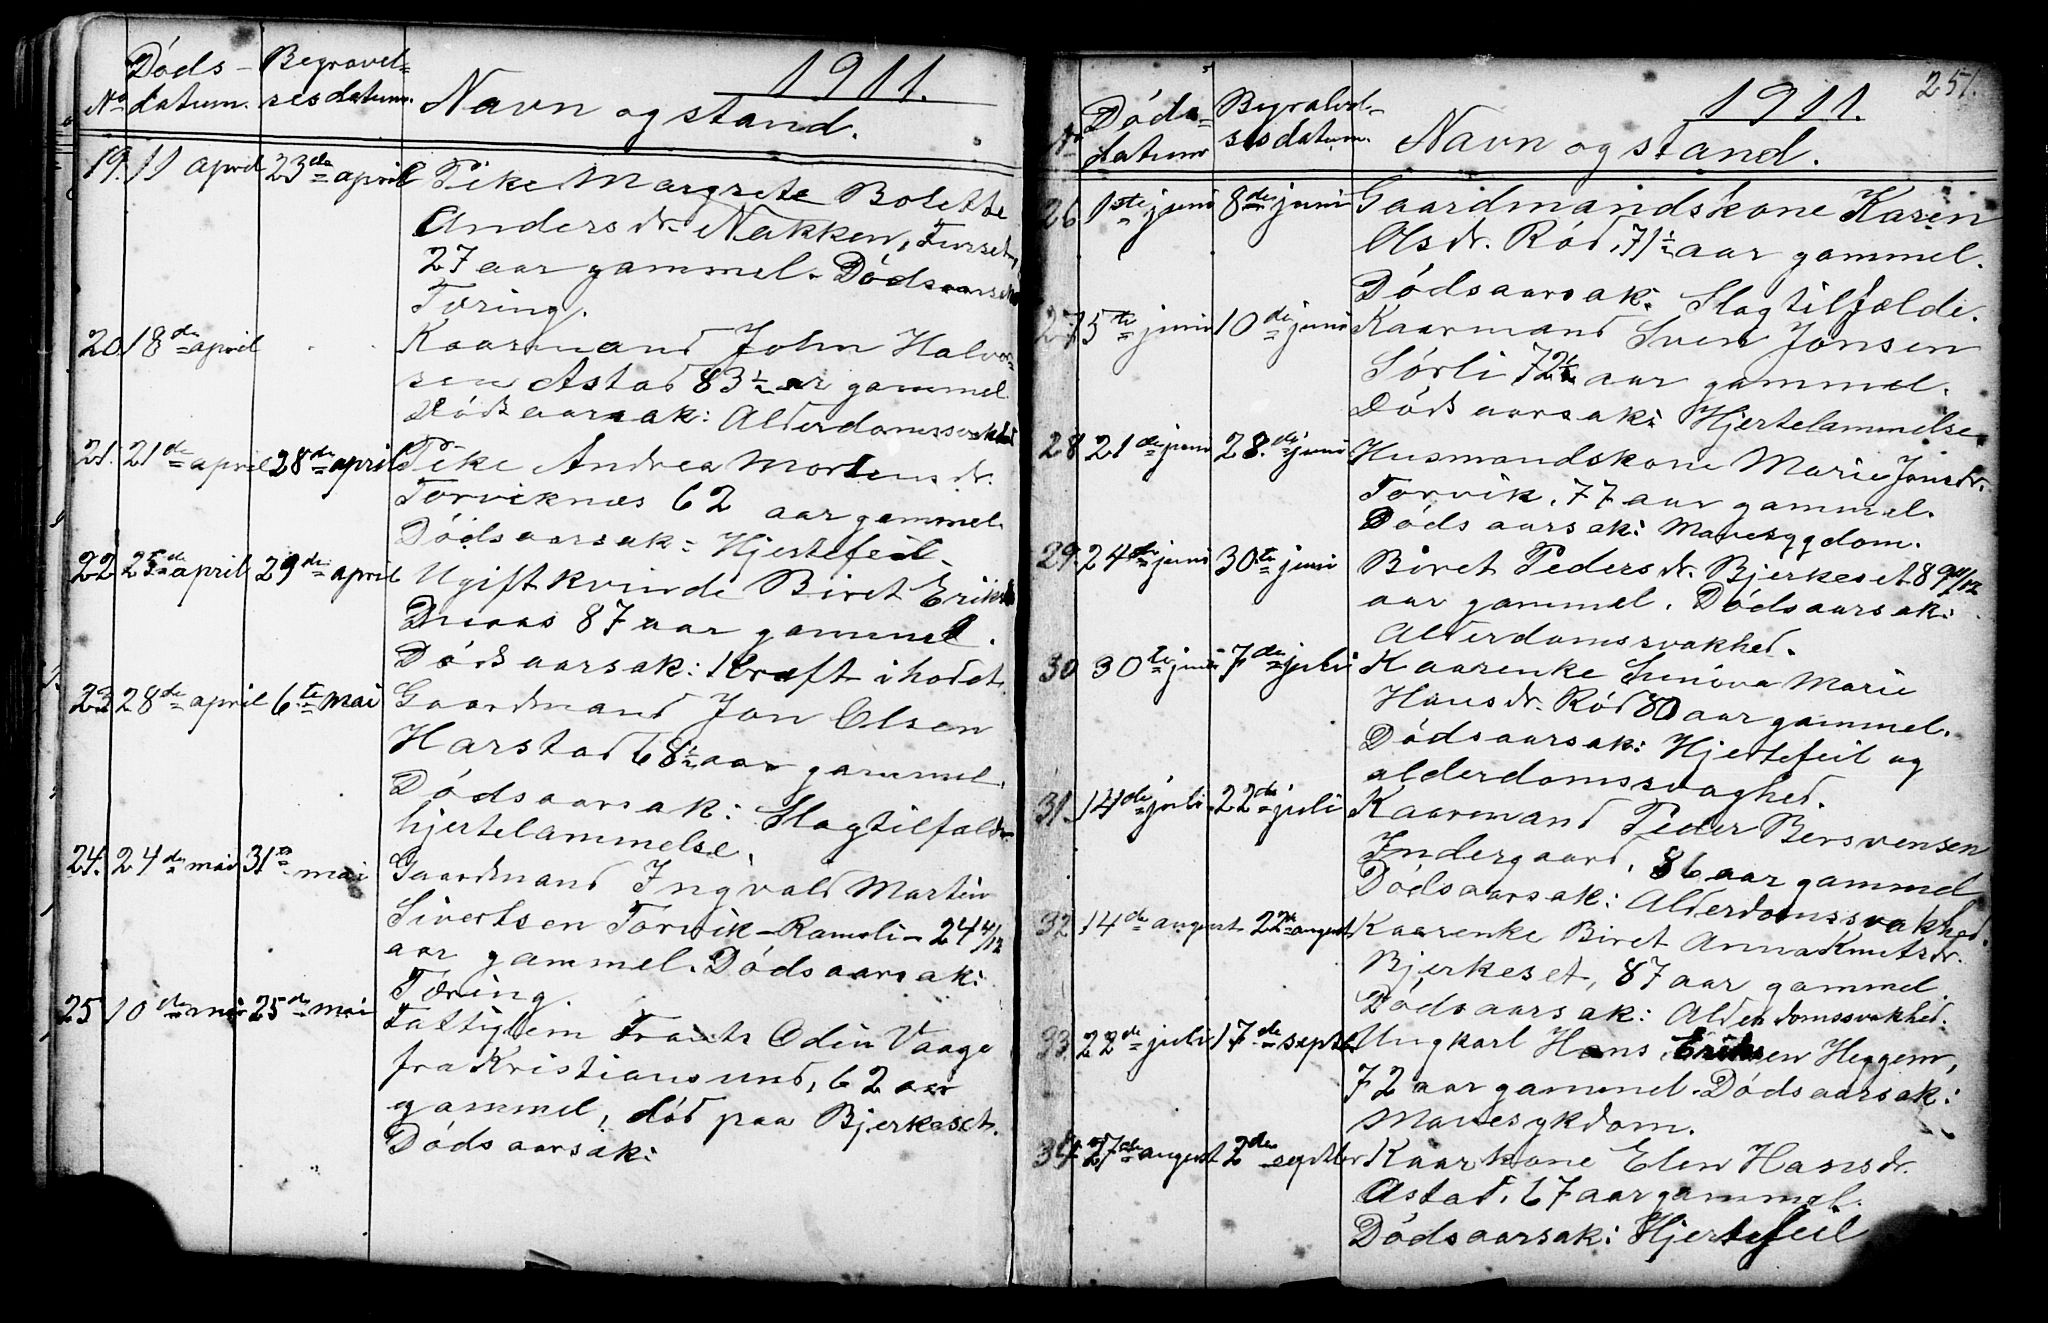 1911.
Døds- Begravel-
No datum. sesdatum. Navn og stand.
19. 11 april 23de april Pike Margrete Bolette
Andersdr. Nakken, Furset,
27 aar gammel. Dødsaarsak
Tæring.
20 18de april Kaarmand John Halvor-
sen Astad 83½ ar gammel
Dødsaarsak: Alderdomssvakhed
21. 21de april 28de april Pike Andrea Mortensdr.
Torviknæs 62 aar gammel.
Dødsaarsak: Hjertefeil.
22 25de april 29de april Ugift kvinde Biret Eriksdr.
87 aar gammel.
Dødsaarsak: Kræft i hodet.
23 28de april 6te mai Gaardmand Jon Olsen
Harstad 68½ aar gammel.
Dødsaarsak: Slagtilfælde-
hjertelammelse.
24. 24de mai 31te mai Gaardmand Ingvald Martin
Sivertsen Torvik-Ramsli- 24 4/12
aar gammel. Dødsaarsak:
Tæring.
25 10de mai 25de mai Fattiglem Frants Odin Vaage
fra Kristiansund, 62 aar
gammel, død paa Bjerkeset.
Dødsaarsak:
251.
1911.
Døds- Begravel-
No datum sesdatum. Navn og stand.
26 1ste juni 8de juni Gaardmandskone Karen
Olsdr. Rød, 71½ aar gammel.
Dødsaarsak: Slagtilfælde.
27 5te juni 10de juni Kaarmand Sven Jonsen
Sørli 72½ aar gammel.
Dødsaarsak: Hjertelammelse.
28 21de juni 28.de juni Husmandskone Marie Jonsdr.
Torvik, 77 aar gammel.
Dødsaarsak: Mavesygdom.
29. 24de juni 30te juni Biret Pedersdr. Bjerkeset 89 11/12
aar gammel. Dødsaarsak:
Alderdomssvakhed.
30 30te juni 7de juli Kaarenke Sinova Marie
Hansdr. Rød 80 aar gammel.
Dødsaarsak: Hjertefeil og
alderdomssvaghed.
31. 14de juli 22de juli Kaarmand Peder Bersvensen
Indergaard, 86 aar gammel
Dødsaarsak: Alderdomssvakhed.
32. 14de august 22de august Kaarenke Biret Anna Knutsdr.
Bjerkeset, 87 aar gammel
Dødsaarsak: Alderdomssvakhed.
33 22de juli 17de septbr Ungkarl Hans Eriksen Heggem,
72 aar gammel. Dødsaarsak:
Mavesykdom.
34 27de august 2de septbr Kaarkone Elen Hansdr.
Astad, 67 aar gammel.
Dødsaarsak: Hjertefeil